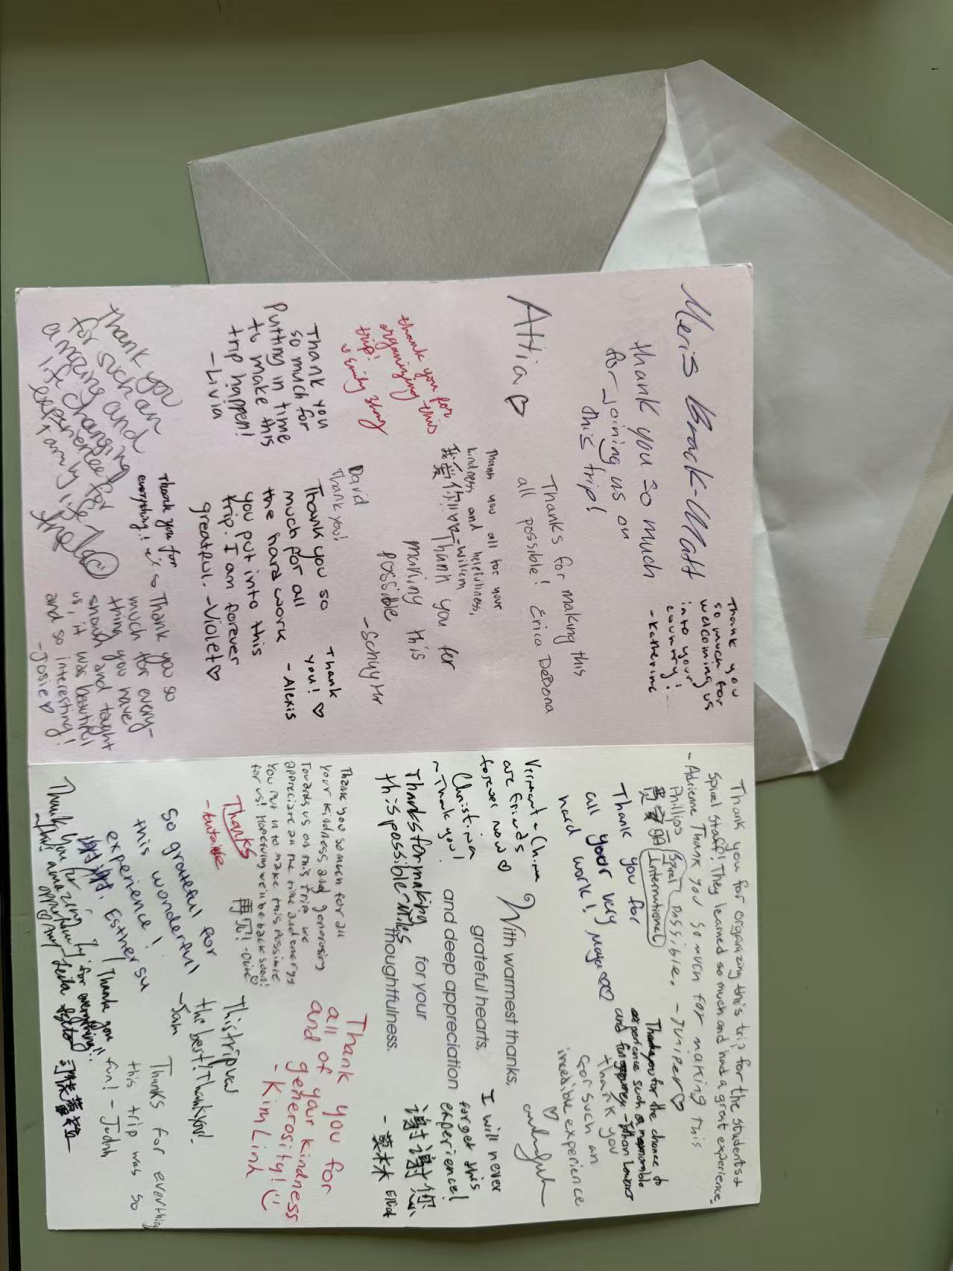 Meris Brock-Matt
thank you so much
for joining us on
this trip!
Thank you
so much for
welcoming us
into your
country!
- Katherine
Attia ♡
Thanks for making this
all possible! Erica DeBona
thank you for
organizing this
trip!
Thank you all for your
kindness and helpfulness,
我爱你!! - William
Thank you for
making this
possible
- Schuyler
David
Thank you!
Thank you
so much for
Putting in time
to make this
trip happen!
- Livia
Thank you so
much for all
the hard work
you put into this
trip. I am forever
greatful. - Violet ♡
Thank
you! ♡
- Alexis
Thank you
for such an
amazing and
life changing
experience!
Thank you for
everything!
Thank you so
much for every-
thing you have
should and taught
us, it was beautiful
and so interesting!
- Josie ♡
Thank you for organizing this trip for the students &
Spiral Staff! They learned so much and had a great experience.
- Adrienne Phillips
Spiral
International
Thank you so much for making this
possible. - Juniper ♡
Thank you for
all your very
hard work!
Maya ♡♡
Thank you for the chance to
experience such a memorable
Vermont + China
are friends
forever now ♡
Christina
~ Thank you!
With warmest thanks,
grateful hearts,
and deep appreciation
for your
thoughtfulness.
Thank you
for such an
incredible experience
♡
Thanks for making
this possible - Miles
I will never
forget this
experience!
谢谢您
- Elliot
Thank you so much for all
your kindness and generosity
towards us on this trip. We
appreciate all the time and energy
you put in to make this possible
for us! Hopefully we'll be back soon!
再见!
Thanks
Thank you for
all of your kindness
and generosity!
- Kim Link
So grateful for
this wonderful
experience!
谢谢, Esther Su
- Sam
This trip was
the best! Thank you!
Thank you for
this amazing
opportunity
Thank you
for everything!!
Thanks for everything
this trip was so
fun! - Judah